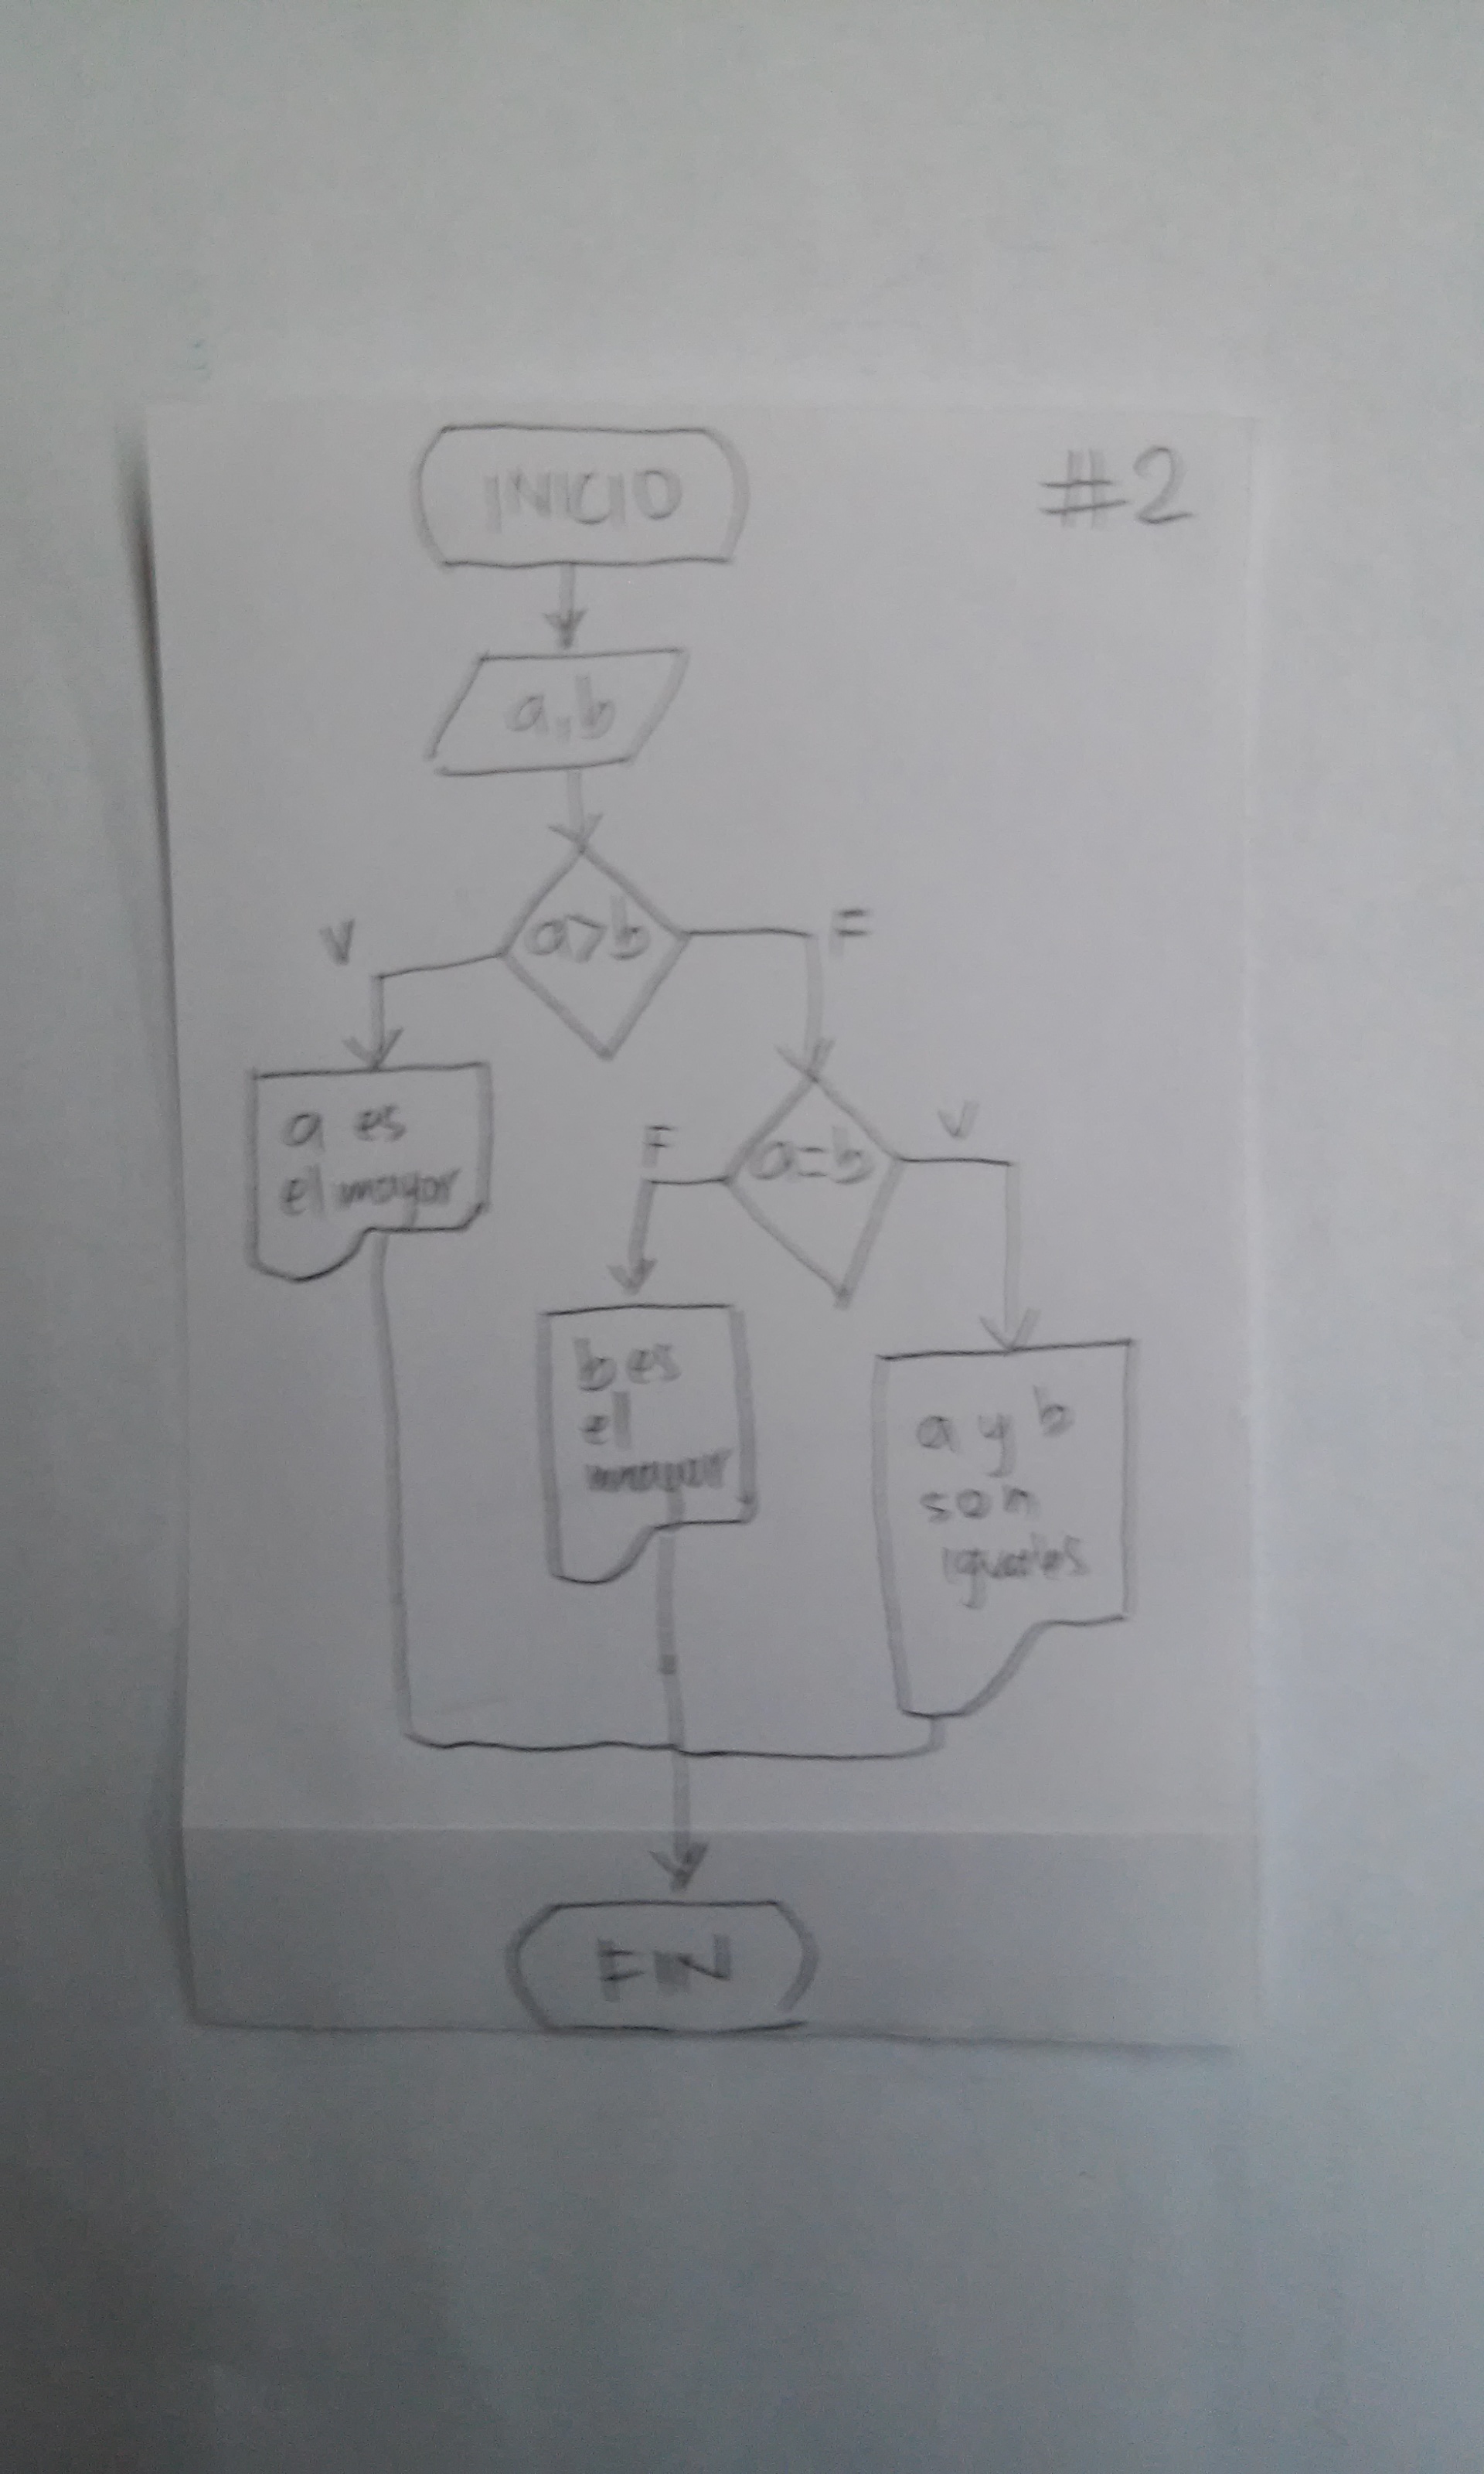 INICIO
#2
a,b
a>b
V
F
a es
el mayor
a=b
F
V
b es
el
mayor
a y b
son
iguales
FIN